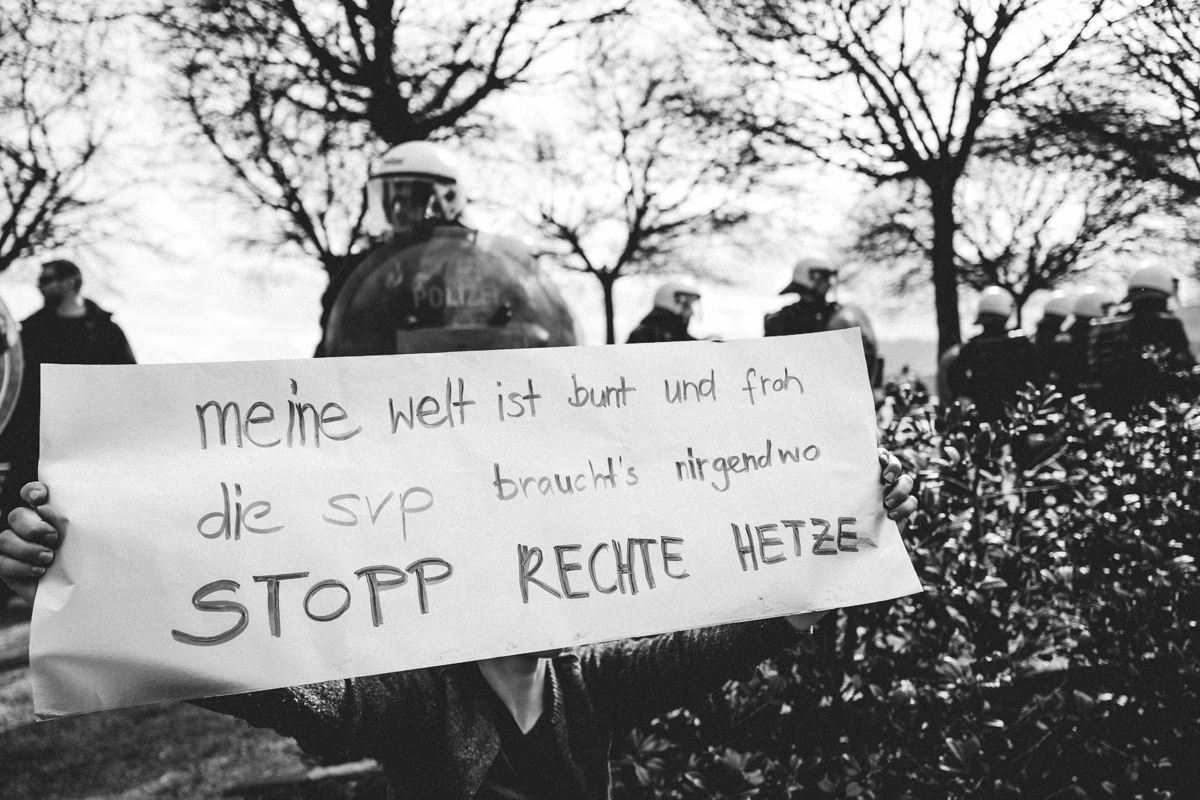 POLIZEI
meine welt ist bunt und froh
die svp braucht's nirgendwo
STOPP RECHTE HETZE